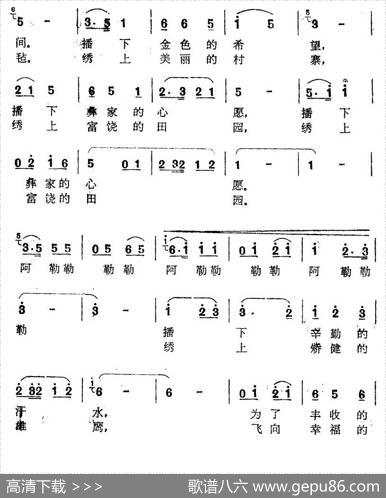 5 - 3·5 1 6 5 1 5 3 -
间。 播下 金色的 希 望,
毡。 绣上 美丽的 村 寨,
2 1 5 6 5 1 2·3 2 1 5 - 5·1 1
播下 彝家的 心 愿, 播下
绣上 富饶的 田 园, 绣上
0 2 1 6 5 0 1 2 32 1 2 1 - 1 -
彝家的 心 愿。
富饶的 田 园。
3·5 5 5 0 5 6 5 6·1 1 1 0 1 2 1 0 1 2 1 1 2·3
阿勒勒 勒勒 阿勒勒 勒勒 阿勒勒 阿勒
3 - 3 - 1 2 3 3· 2 1 2 3 2
勒 播 下 辛勤的
绣 上 矫健的
2 32 1 2 6 - 6 - 0 1 2 1 6 5 6
汗 水, 为了 丰收的
雄 鹰, 飞向 幸福的
高清下载 >>>
歌谱八六 www.gepu86.com